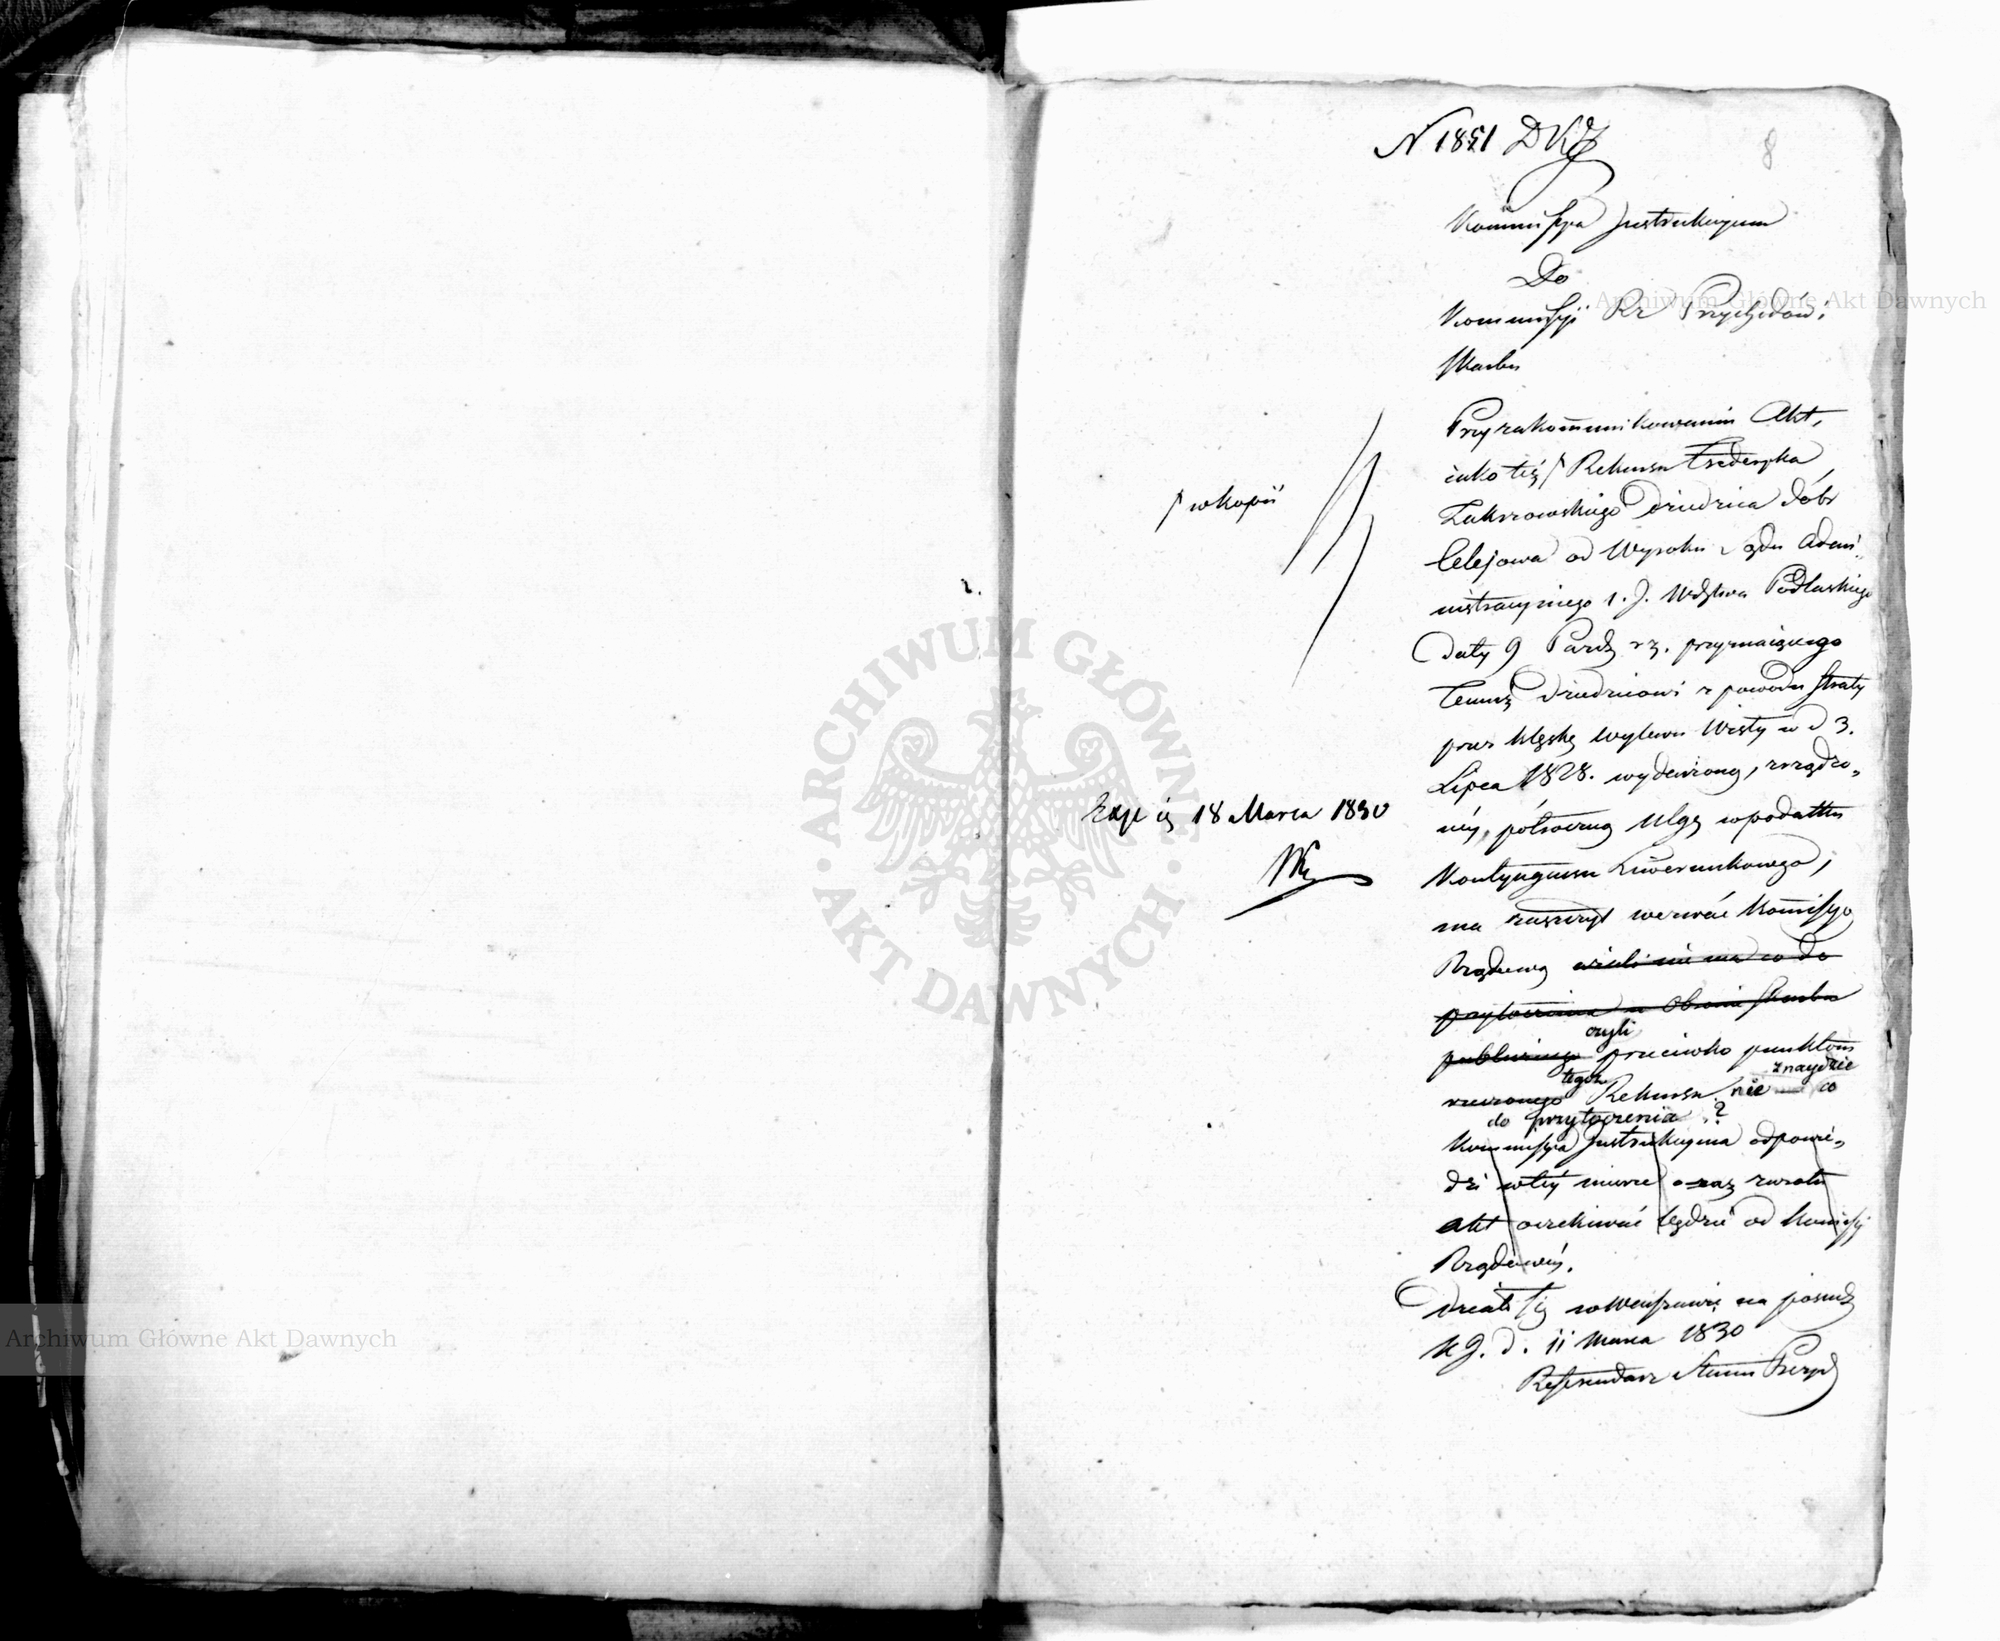 N 1851 DKJ
8
Kommissya Instrukcyina
Do
Kommissyi Rz Przychodów i
Skarbu
Przy zakomunikowaniu Akt,
iako też / Rekursu Fryderyka
/ w kopii
Zakrzewskiego Dziedzica dóbr
Celejowa od Wyroku Sądu Admi-
nistracyinego 1. J. Wdztwa Podlaskiego
daty 9 Paźdz r z. przyznaiącego
Temuż Dziedzicowi z powodu straty
przez klęskę wylewu Wisły w d 3.
Lipca 1828. wydarzoną, zrządzo-
néy, półroczną Ulgę w podatku
Expię 18 Marca 1830
Kontyngensu Liwerunkowego,
ma zaszczyt wezwać Kommissyą
Rządową wieli nie ma co do
przytoczenia w Obronie Skarbu
publicznego czyli przeciwko punktom
rzeczonego tegoż Rekursu nie znaydzie co
do przytoczenia ?
Kommissya Instrukcyina odpowie-
dzi w téy mierze oraz zwrotu
akt oczekiwać będzie od Kommissyi
Rządowéy.
Działo się w Warszawie na posiedz
K J. d. 11 Marca 1830
Referendarz Stanu Prezyd
ARCHIWUM GŁÓWNE AKT DAWNYCH
Archiwum Główne Akt Dawnych
Archiwum Główne Akt Dawnych